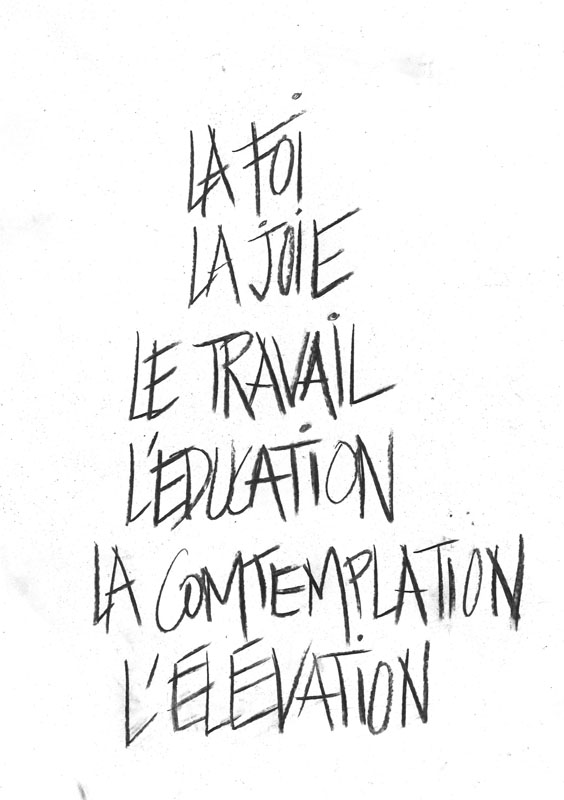 LA FOI
LA JOIE
LE TRAVAIL
L'EDUCATION
LA COMTEMPLATION
L'ÉLÉVATION